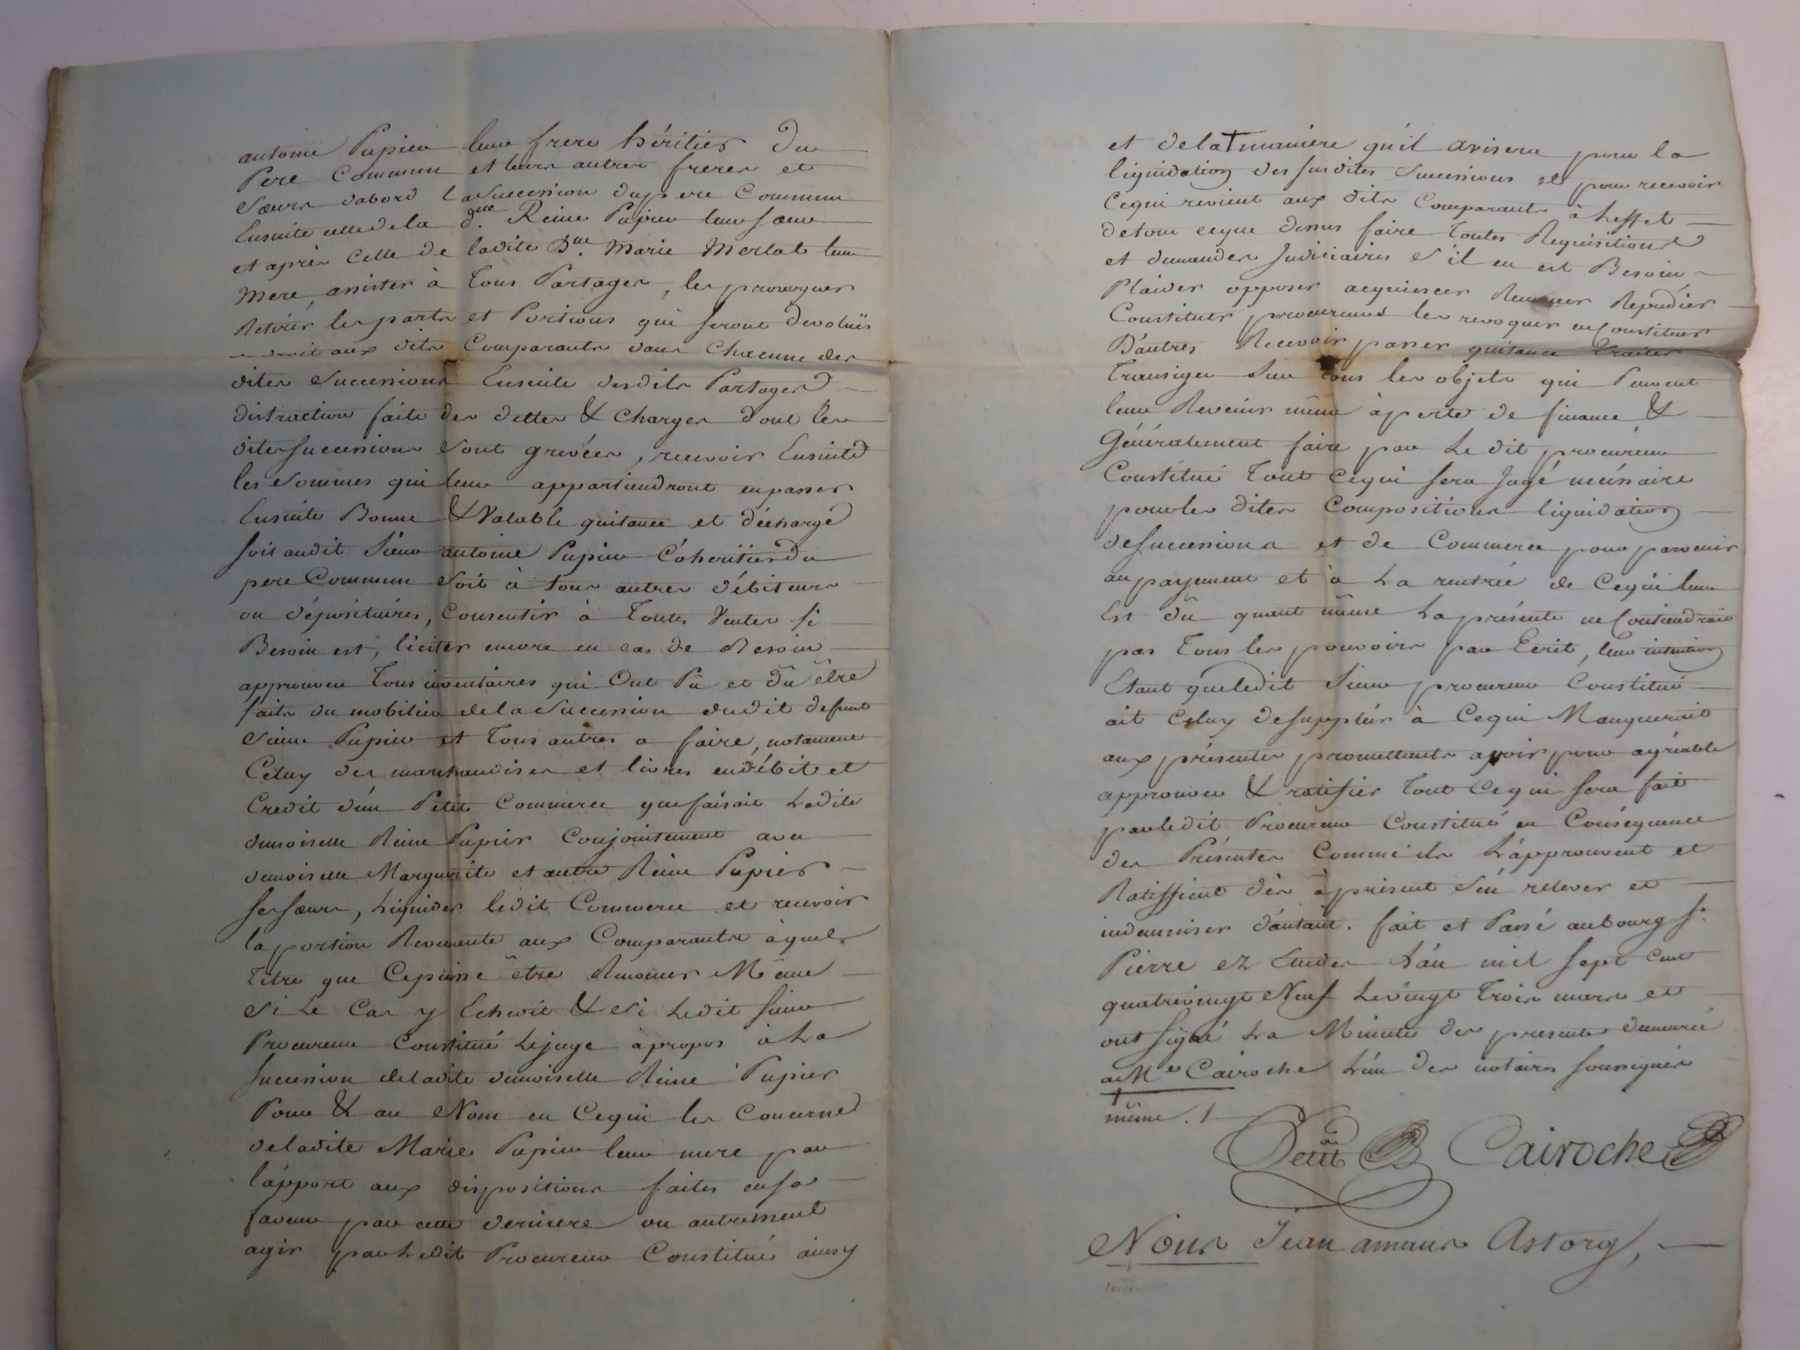 antoine Pupier leur frere héritier du
Pere Commun et leurs autres freres et
Sœurs dabord la Succession dupere Commun
Ensuite celle de la d.lle Reine Pupier leur sœur
et après Celle de ladite D.lle Marie Merlat leur
Mere, assister à Tous Partages, les provoquer
Retirér les parts et Portions qui seront devolués
droit aux dits Comparants dans Chacune des
dites Successions Ensuite desdits Partages
distraction faite des dettes & Charges dont les
dites Successions sont grévées, recevoir Ensuite
les Sommes qui leur appartiendront en passer
Ensuite Bonne & Valable quitance et décharge
soit audit Sieur antoine Pupier Cohéritier du
pere Commun Soit à tous autres débiteurs
ou dépositaires, Consentir à Toutes Ventes si
Besoin est, liciter encore en cas de Besoin
approuver Tous inventaires qui Ont Pû et dû être
faits du mobilier de la Succession dudit defunt
Sieur Pupier et Tous autres a faire, notament
Celuy des marchandises et livres endébit et
Credit d'un Petit Commerce quefaisait Ladite
demoiselle Reine Pupier Conjointement avec
demoiselle Marguerite et autre Reine Pupier
ses sœurs, Liquider ledit Commerce et recevoir
la portion Revenante aux Comparants àquel
Titre que Cepuisse être Renoncer Même
Si Le Cas y Echeoit & Si Ledit Sieur
Procureur Constitué Lejuge àpropos à La
Succession deladite demoiselle Reine Pupier
Pour & au Nom en Cequi les Concerne
deladite Marie Pupier leur mere par
l'apport aux dispositions faites ensa
faveur par cette derniere ou autrement
agir par Ledit Procureur Constitué ainsy
et dela maniére qu'il avisera pour la
liquidation des susdites Successions et pour recevoir
Cequi revient aux dits Comparants à Leffet
detout ceque dessus faire Toutes Requisitions
et demandes Judiciaires S'il en est Besoin
Plaider opposer acquiescer Renoncer Repudier
Constituer procureurs les revoquer en Constituer
D'autres Recevoir passer quitance Traiter
Transiger Sur tous les objets qui Peuvent
leur Revenir même àperte de finance &
Généralement faire par Le dit procureur
Constitué Tout Cequi sera Jugé nécessaire
pour les dites Compositions liquidation
de Successions et de Commerce pour parvenir
au payement et à La rentrée de Cequi leur
Est dû quant même La présente ne Contiendrait
pas Tous les pouvoirs par Ecrit, leur intention
Etant queledit Sieur procureur Constitué
ait Celuy desuppléer à Cequi Manquerait
aux présentes promettants avoir pour agréable
approuver & ratifier Tout Cequi sera fait
parledit Procureur Constitué en Conséquence
des Présentes Comme ils L'approuvent et
Ratiffient dès àprésent s'en relever et
indemniser d'autant. fait et Passé aubourg St.
Pierre ez Etudes L'an mil sept cent
quatrevingt Neuf Levingt Trois mars et
ont signé La Minute des presentes demeurée
a Me Cairoche L'un des notaires soussignés
même. /
Petit Cairoche
Nous Jean amans Astorg,